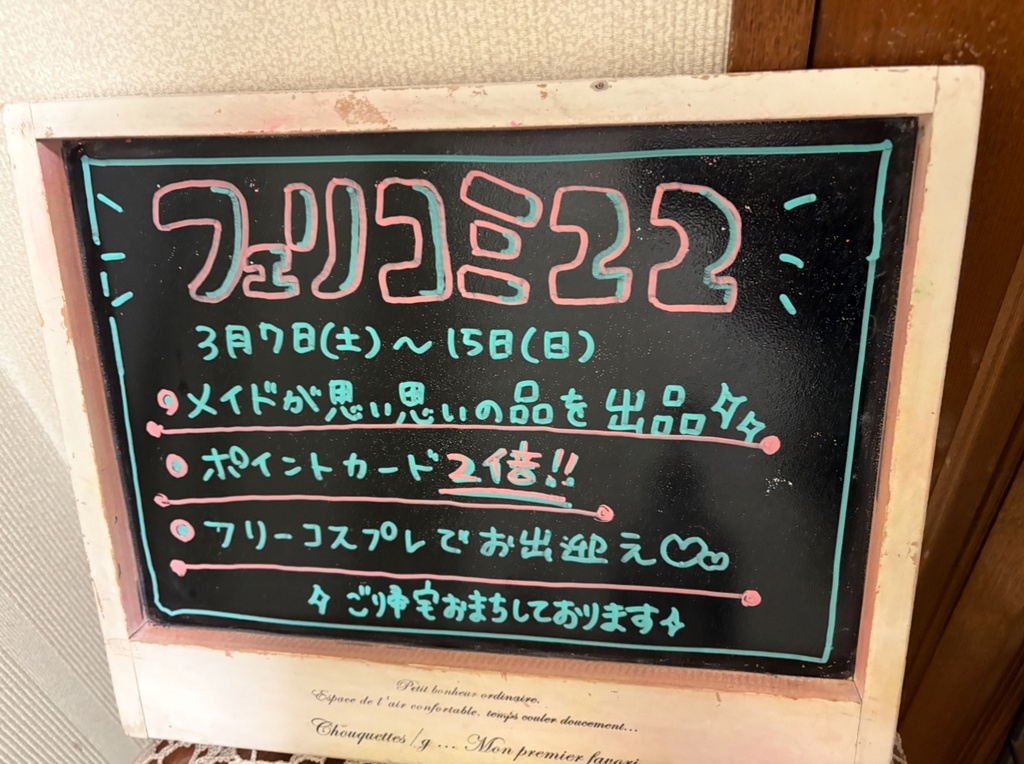 フェリコミ22
3月7日(土)～15日(日)
メイドが思い思いの品を出品
ポイントカード2倍!!
フリーコスプレでお出迎え
ご帰宅おまちしております
Petit bonheur ordinaire.
Espace de l'air confortable, temps couler doucement...
Chouquettes/g ... Mon premier favori